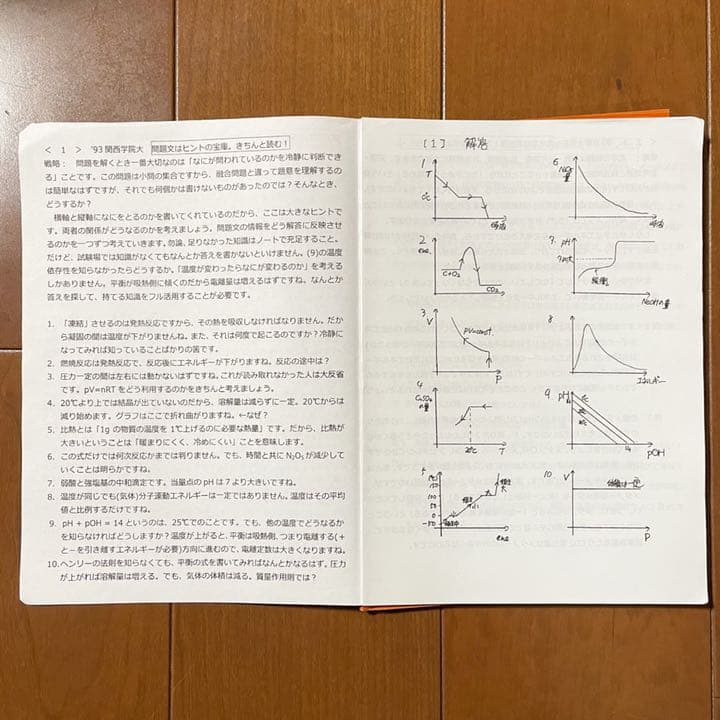 < 1 > '93 関西学院大 問題文はヒントの宝庫。きちんと読む!
戦略: 問題を解くとき一番大切なのは「なにが問われているのかを冷静に判断でき
る」ことです。この問題は小問の集合ですから、融合問題と違って題意を理解するの
は簡単なはずですが、それでも何個かは書けないものがあったのでは?そんなとき、
どうするか?
横軸と縦軸になにをとるのかを書いてくれているのだから、ここは大きなヒントで
す。両者の関係がどうなるのかを考えましょう。問題文の情報をどう解答に反映させ
るのかを一つずつ考えていきます。勿論、足りなかった知識はノートで充足すること。
だけど、試験場では知識がなくてもなんとか答えを書かないといけません。(9)の温度
依存性を知らなかったらどうするか。「温度が変わったらなにが変わるのか」を考える
しかありません。平衡が吸熱側に傾くのだから電離量は増えるはずですね。なんとか
答えを探して、持てる知識をフル活用することが必要です。
1. 「凍結」させるのは発熱反応ですから、その熱を吸収しなければなりません。だか
ら凝固の間は温度が下がりませんね。また、それは何度で起こるのですか?冷静に
なってみれば知っていることばかりの筈です。
2. 燃焼反応は発熱反応で、反応後にエネルギーが下がりますね。反応の途中は?
3. 圧力一定の間は左右には動かないはずですね。これが読み取れなかった人は大反省
です。pV=nRT をどう利用するのかをきちんと考えましょう。
4. 20℃より上では結晶が出ていないのだから、溶解量は減らずに一定。20℃からは
減り始めます。グラフはここで折れ曲がりますね。←なぜ?
5. 比熱とは「1g の物質の温度を 1℃上げるのに必要な熱量」です。だから、比熱が
大きいということは「暖まりにくく、冷めにくい」ことを意味します。
6. この式だけでは何次反応かまでは判りません。でも、時間と共に N₂O₅ が減少して
いくことは明らかですね。
7. 弱酸と強塩基の中和滴定です。当量点の pH は 7 より大きいですね。
8. 温度が同じでも(気体)分子運動エネルギーは一定ではありません。温度はその平均
値と比例するだけですね。
9. pH + pOH = 14 というのは、25℃でのことです。でも、他の温度でどうなるか
を知らなければどうしますか?温度が上がると、平衡は吸熱側、つまり電離する(+
と−を引き離すエネルギーが必要)方向に進むので、電離定数は大きくなりますね。
10. ヘンリーの法則を知らなくても、平衡の式を書いてみればなんとかなるはず。圧力
が上がれば溶解量は増える。でも、気体の体積は減る。質量作用則では?
[1] 解答
1
T
0℃
時間
2.
ene.
C+O₂
CO₂
3.
V
pV=const
P
4
CuSO₄
の量
20℃
T
150
100
50
0
-50
ene
6
N₂O₅
量
時間
7.
pH
緩衝
NaOHの量
8
エネルギー
9.
pH
14
pOH
10
V
体積は一定
P